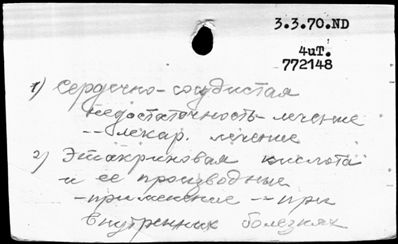 3.3.70.ND
4иT.
772148
1) Сердечно-сосудистая
недостаточность-лечение
--лекар. лечение
2) Этакриновая кислота
и ее производные
-применение --при
внутренних болезнях